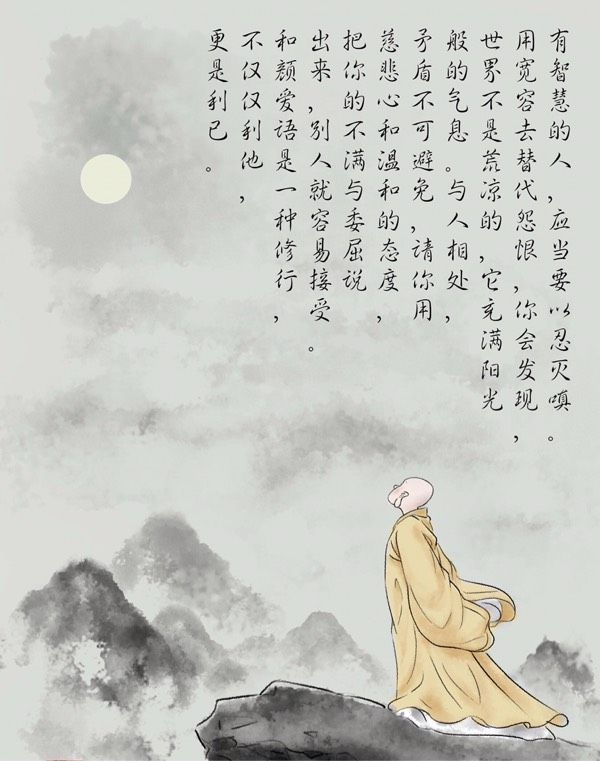 有智慧的人,应当要以忍灭嗔。
用宽容去替代怨恨,你会发现,
世界不是荒凉的,它充满阳光
般的气息。与人相处,
矛盾不可避免,请你用
慈悲心和温和的态度,
把你的不满与委屈说
出来,别人就容易接受。
和颜爱语是一种修行,
不仅仅利他,
更是利己。